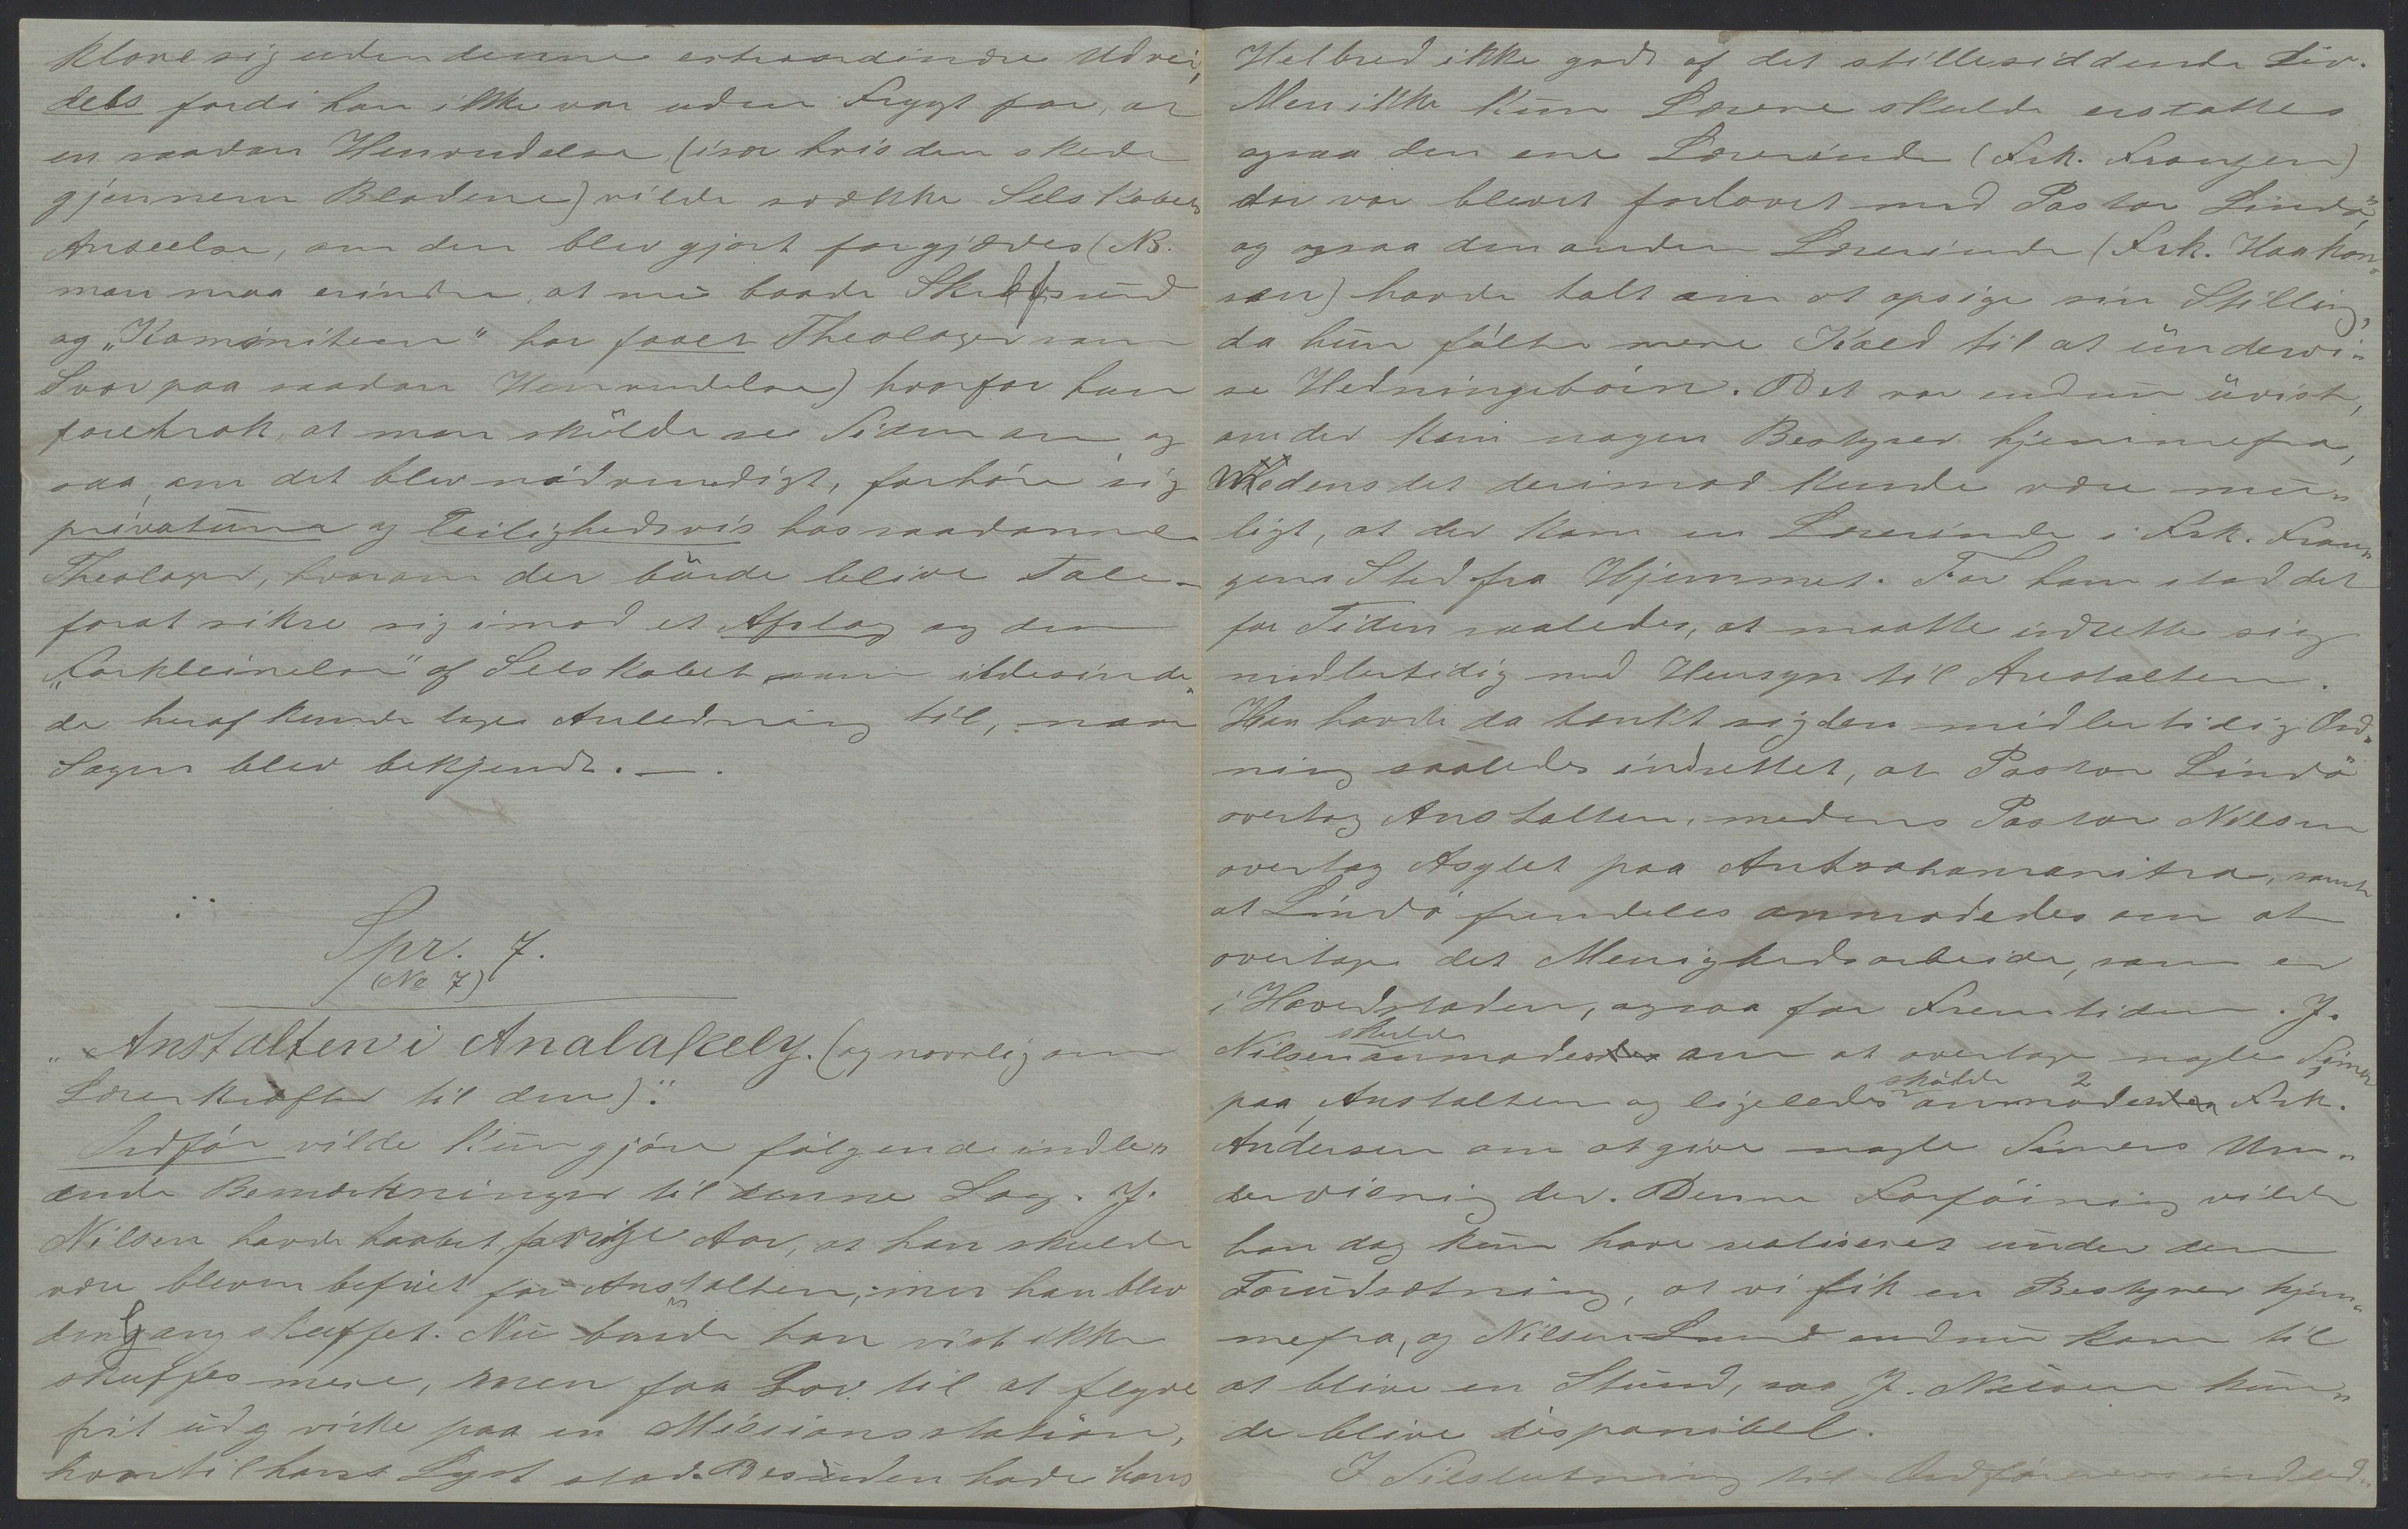 klare sig uden denne extraordinære Udvei,
dels fordi han ikke var uden Frygt for, at
en saadan Henvendelse (især hvis den skede
gjennem Bladene) vilde svække Selskabets
Anseelse, om den blev gjort forgjæves (NB.
man maa erindre, at nu baade Skrefsrud
og „Kominiteen" har faaet Theologer som
Svar paa saadan Henvendelse) hvorfor han
foretrak, at man skulde se Tiden an og
saa, om det blev nødvendigt, forhøre sig
privatim og leilighedsvis hos saadanne
Theologer, hvorom der burde blive Tale -
forat sikre sig imod et Afslag og den
„Forkleinelse" af Selskabet, som ildesinde„
de heraf kunde tage Anledning til, naar
Sagen blev bekjendt. — .
Spr. 7.
(No 7)
„Anstalten i Analakely. (og navnlig om
Lærerkræfter til den)."
Ordfør vilde kun gjøre følgende indle„
dende Bemærkninger til denne Sag. J.
Nilsen havde haabet forrige Aar, at han skulde
være bleven befriet for Anstalten, men han blev
dengang skuffet. Nu burde han vist ikke
skuffes mere, men faa Lov til at flyve
frit ud og virke paa en Missionsstation,
hvortil hans Lyst stod. Desuden havde hans
Helbred ikke godt af det stillesiddende Liv.
Men ikke kun Lærere skulde erstattes
ogsaa den ene Lærerinde (Frk. Frangen)
der var blevet forlovet med Pastor Lindø,
og ogsaa den anden Lærerinde (Frk. Haakon„
sen) havde talt om at opsige sin Stilling,
da hun følte mere Kald til at undervi„
se Hedningebørn. Det var endnu uvist,
om der kom nogen Bestyrer hjemmefra,
Medens det derimod kunde være mu„
ligt, at der kom en Lærerinde i Frk. Fran„
gens Sted fra Hjemmet. For ham stod det
for Tiden saaledes, at maatte indrette sig
midlertidig med Hensyn til Anstalten.
Han havde da tænkt sig den midlertidig Ord„
ning saaledes indrettet, at Pastor Lindø
overtog Anstalten, medens Pastor Nilsen
overtog Asylet paa Antsahamanitra, samt
at Lindø fremdeles anmodedes om at
overtage det Menighedsarbeide, som er
i Hovedstaden, ogsaa for Fremtiden. J.
Nilsen skulde anmodes om at overtage nogle Timer
paa Anstalten og ligeledes skulde anmodes 2 Frk.
Andersen om at give nogle Timers Un„
dervisning der. Denne Forføining vilde
han dog kun have realiseret under den
Forudsætning, at vi fik en Bestyrer hjem„
mefra, og Nilsen Lund endnu kom til
at blive en Stund, saa J. Nilsen kun„
de blive disponibel.
I Tilslutning til Ordførerens indled„